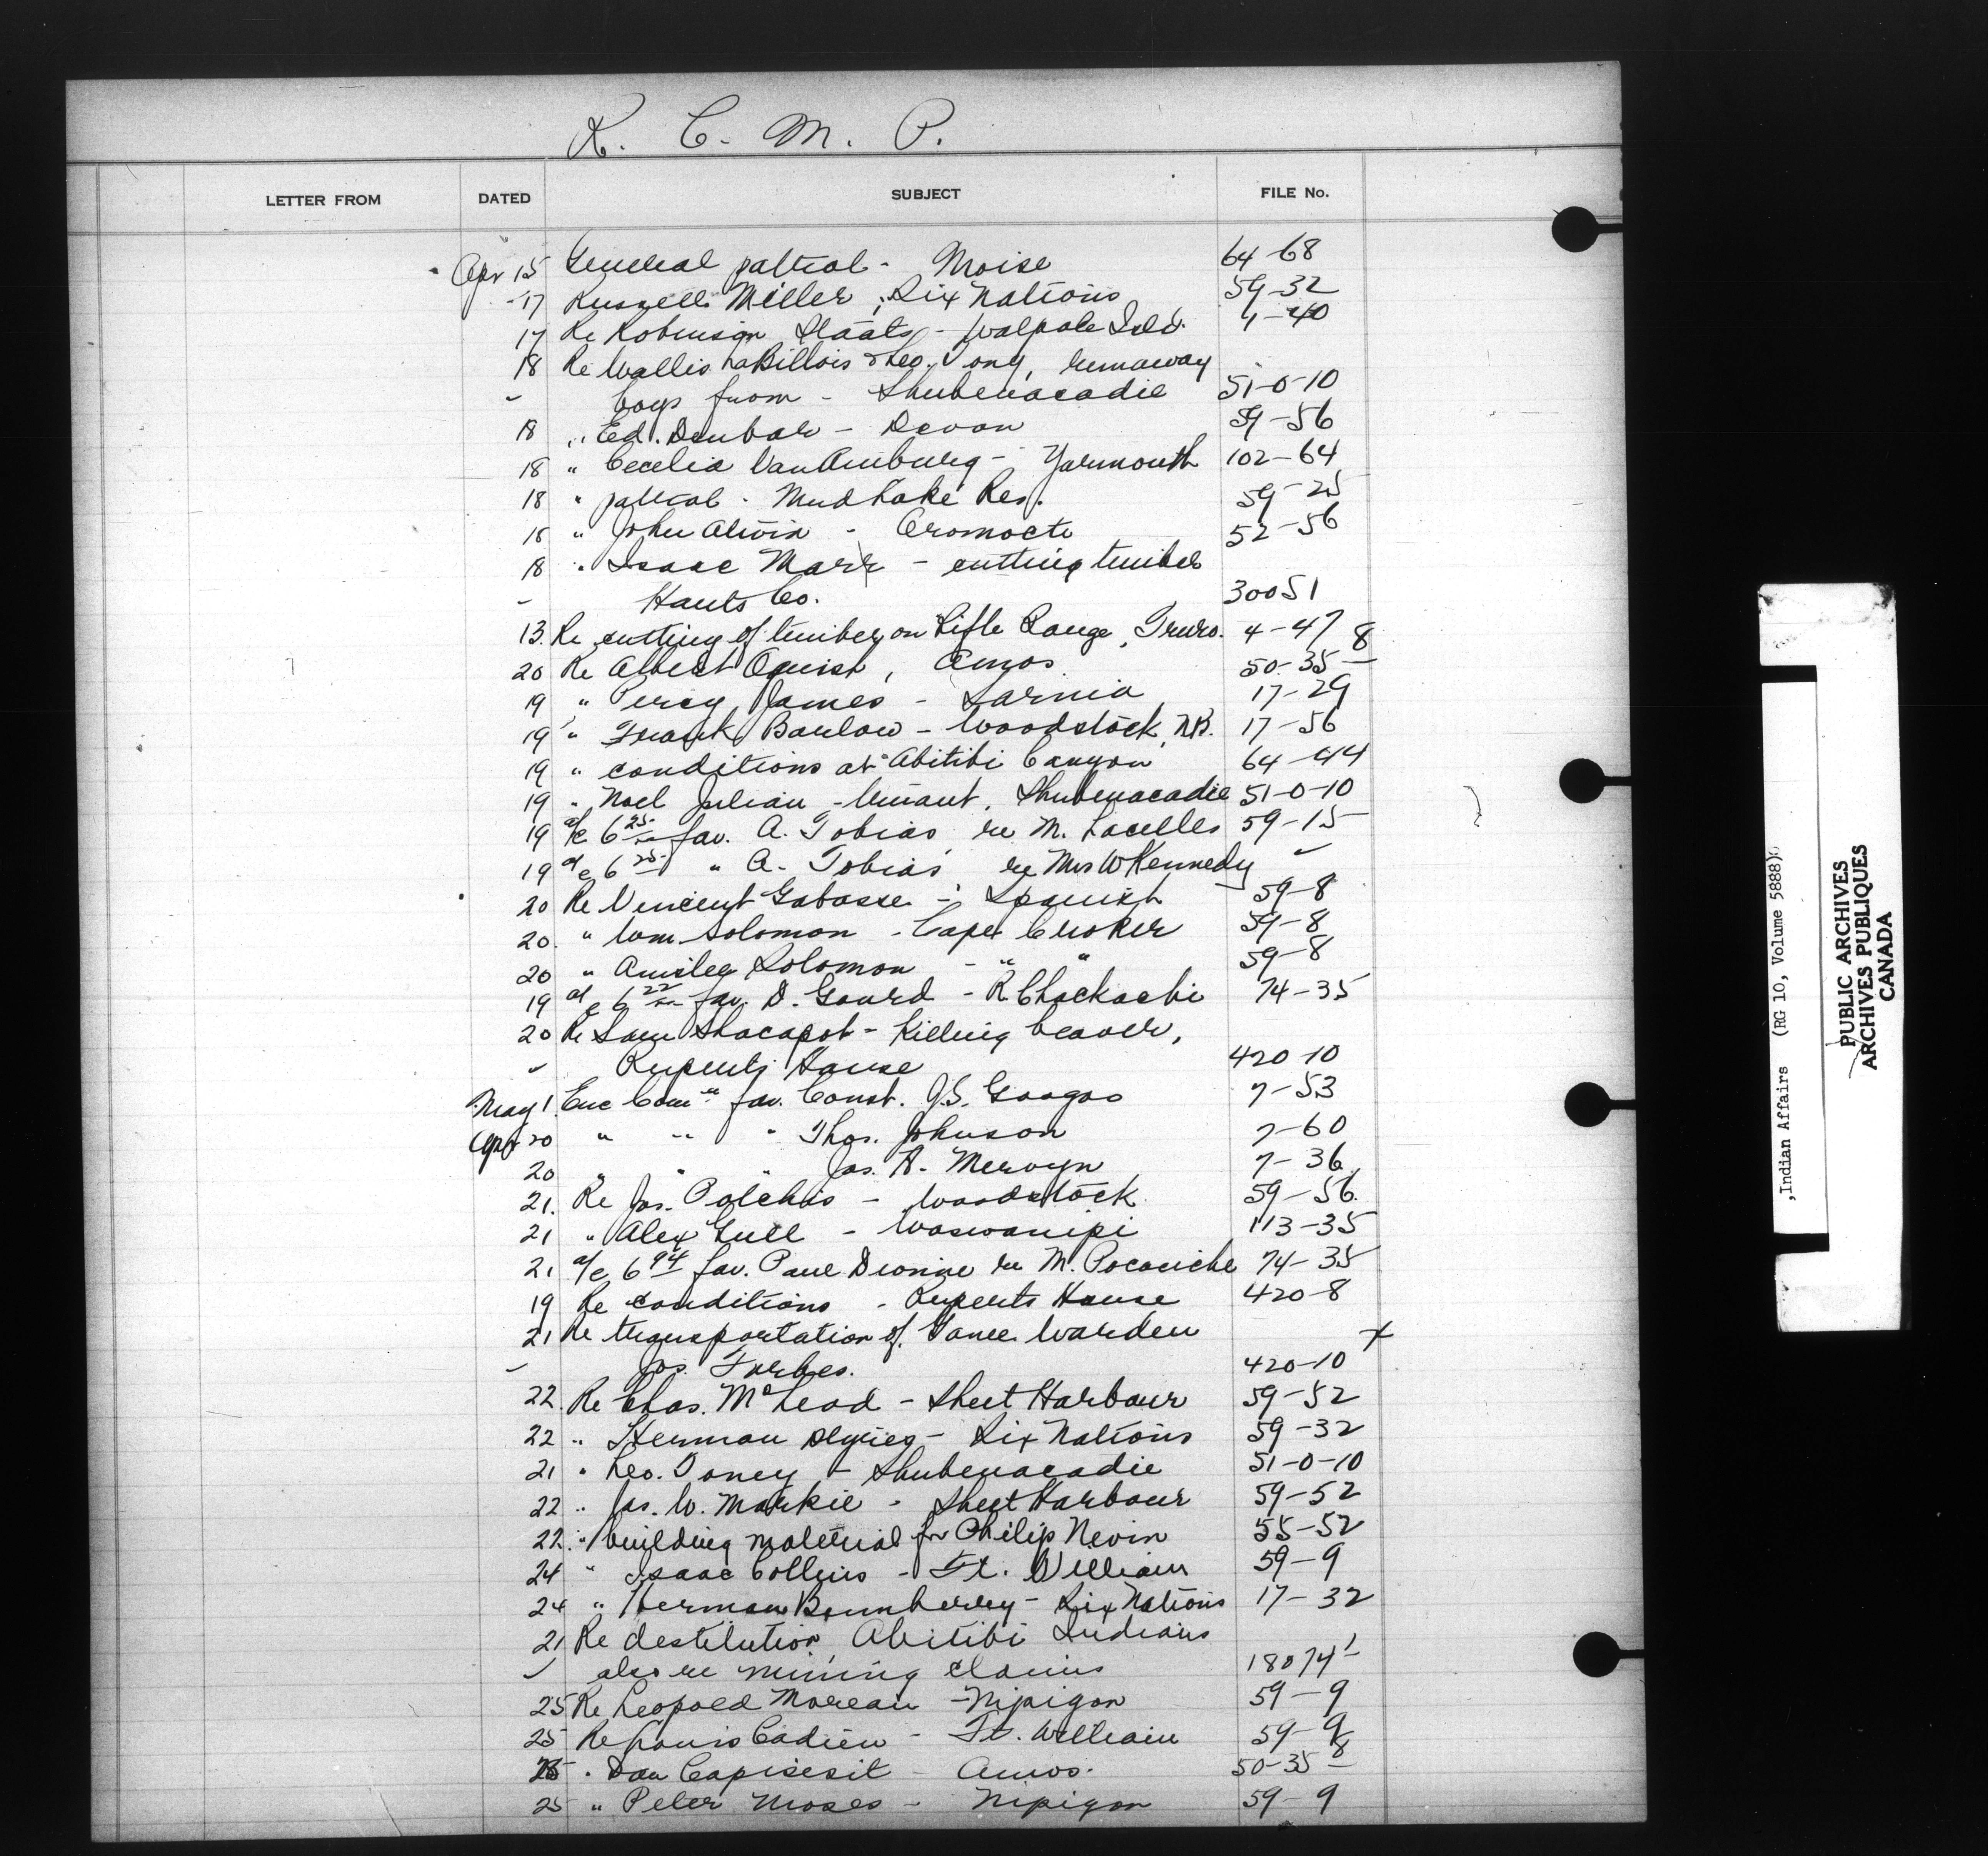 R. C. M. P.
LETTER FROM DATED SUBJECT FILE No.
Apr 15 General patrol - Moise 64-68
17 Russell Miller, Six Nations 59-32
17 Re Robinson Staats - Walpole Isld. 4-40
18 Re Wallis LaBillois & Leo. Tony, runaway
boys from - Shubenacadie 51-0-10
18 " Ed. Dunbar - Devon 59-56
18 " Cecelia VanAmburg - Yarmouth 102-64
18 " patrol - Mud Lake Res. 59-25
18 " John Alvin - Oromocto 52-56
18 " Isaac Marr - cutting timber
Hants Co. 30051
13 Re cutting of timber on Rifle Range, Truro. 4-47
20 Re Albert , Amos 50-35-8
19 " Percy James - Sarnia 17-29
19 " Frank Barlow - Woodstock, N.B. 17-56
19 " conditions at Abitibi Canyon 64-44
19 " Noel Julian - truant, Shubenacadie 51-0-10
19 a/c 6 25 fav. A. Tobias re M. Lacelles 59-15
19 a/c 6 25 " A. Tobias re Mrs W Kennedy "
20 Re Vincent Gabasse - Spanish 59-8
20 " Wm Solomon - Cape Croker 59-8
20 " Solomon - " " 59-8
19 a/c 6 22 fav. D. Gourd - R. Chackachi 74-35
20 Re Sam Shacapot - Killing beaver,
Ruperts House 420-10
May 1 Enc Com'n fav. Const. J.S. Googoo 7-53
Apr 20 " " " Thos. Johnson 7-60
20 " " " Jas. A. Mervyn 7-36
21. Re Jos. Polchis - Woodstock 59-56
21 " Alex Gull - Waswanipi 113-35
21 a/c 6 94 fav. Paul Dionne re M. Pocachiche 74-35
19 Re conditions - Ruperts House 420-8
21 Re transportation of Game Warden
Jas. Forbes. 420-10 x
22 Re Chas. McLeod - Sheet Harbour 59-52
22 " Herman - Six Nations 59-32
21 " Leo. Toney - Shubenacadie 51-0-10
22 " Jas. W. Markie - Sheet Harbour 59-52
22 " building material for Philip Nevin 55-52
24 " Isaac Collins - Ft. William 59-9
24 " Herman Bomberry - Six Nations 17-32
21 Re destitution Abitibi Indians
also re mining claims 18074-1
25 Re Leopold Moreau - Nipigon 59-9
25 Re Louis Cadieu - Ft. William 59-9
25 " Dan Capisesit - Amos. 50-35-8
25 " Peter Moses - Nipigon 59-9
,Indian Affairs (RG 10, Volume 5888)
PUBLIC ARCHIVES
ARCHIVES PUBLIQUES
CANADA